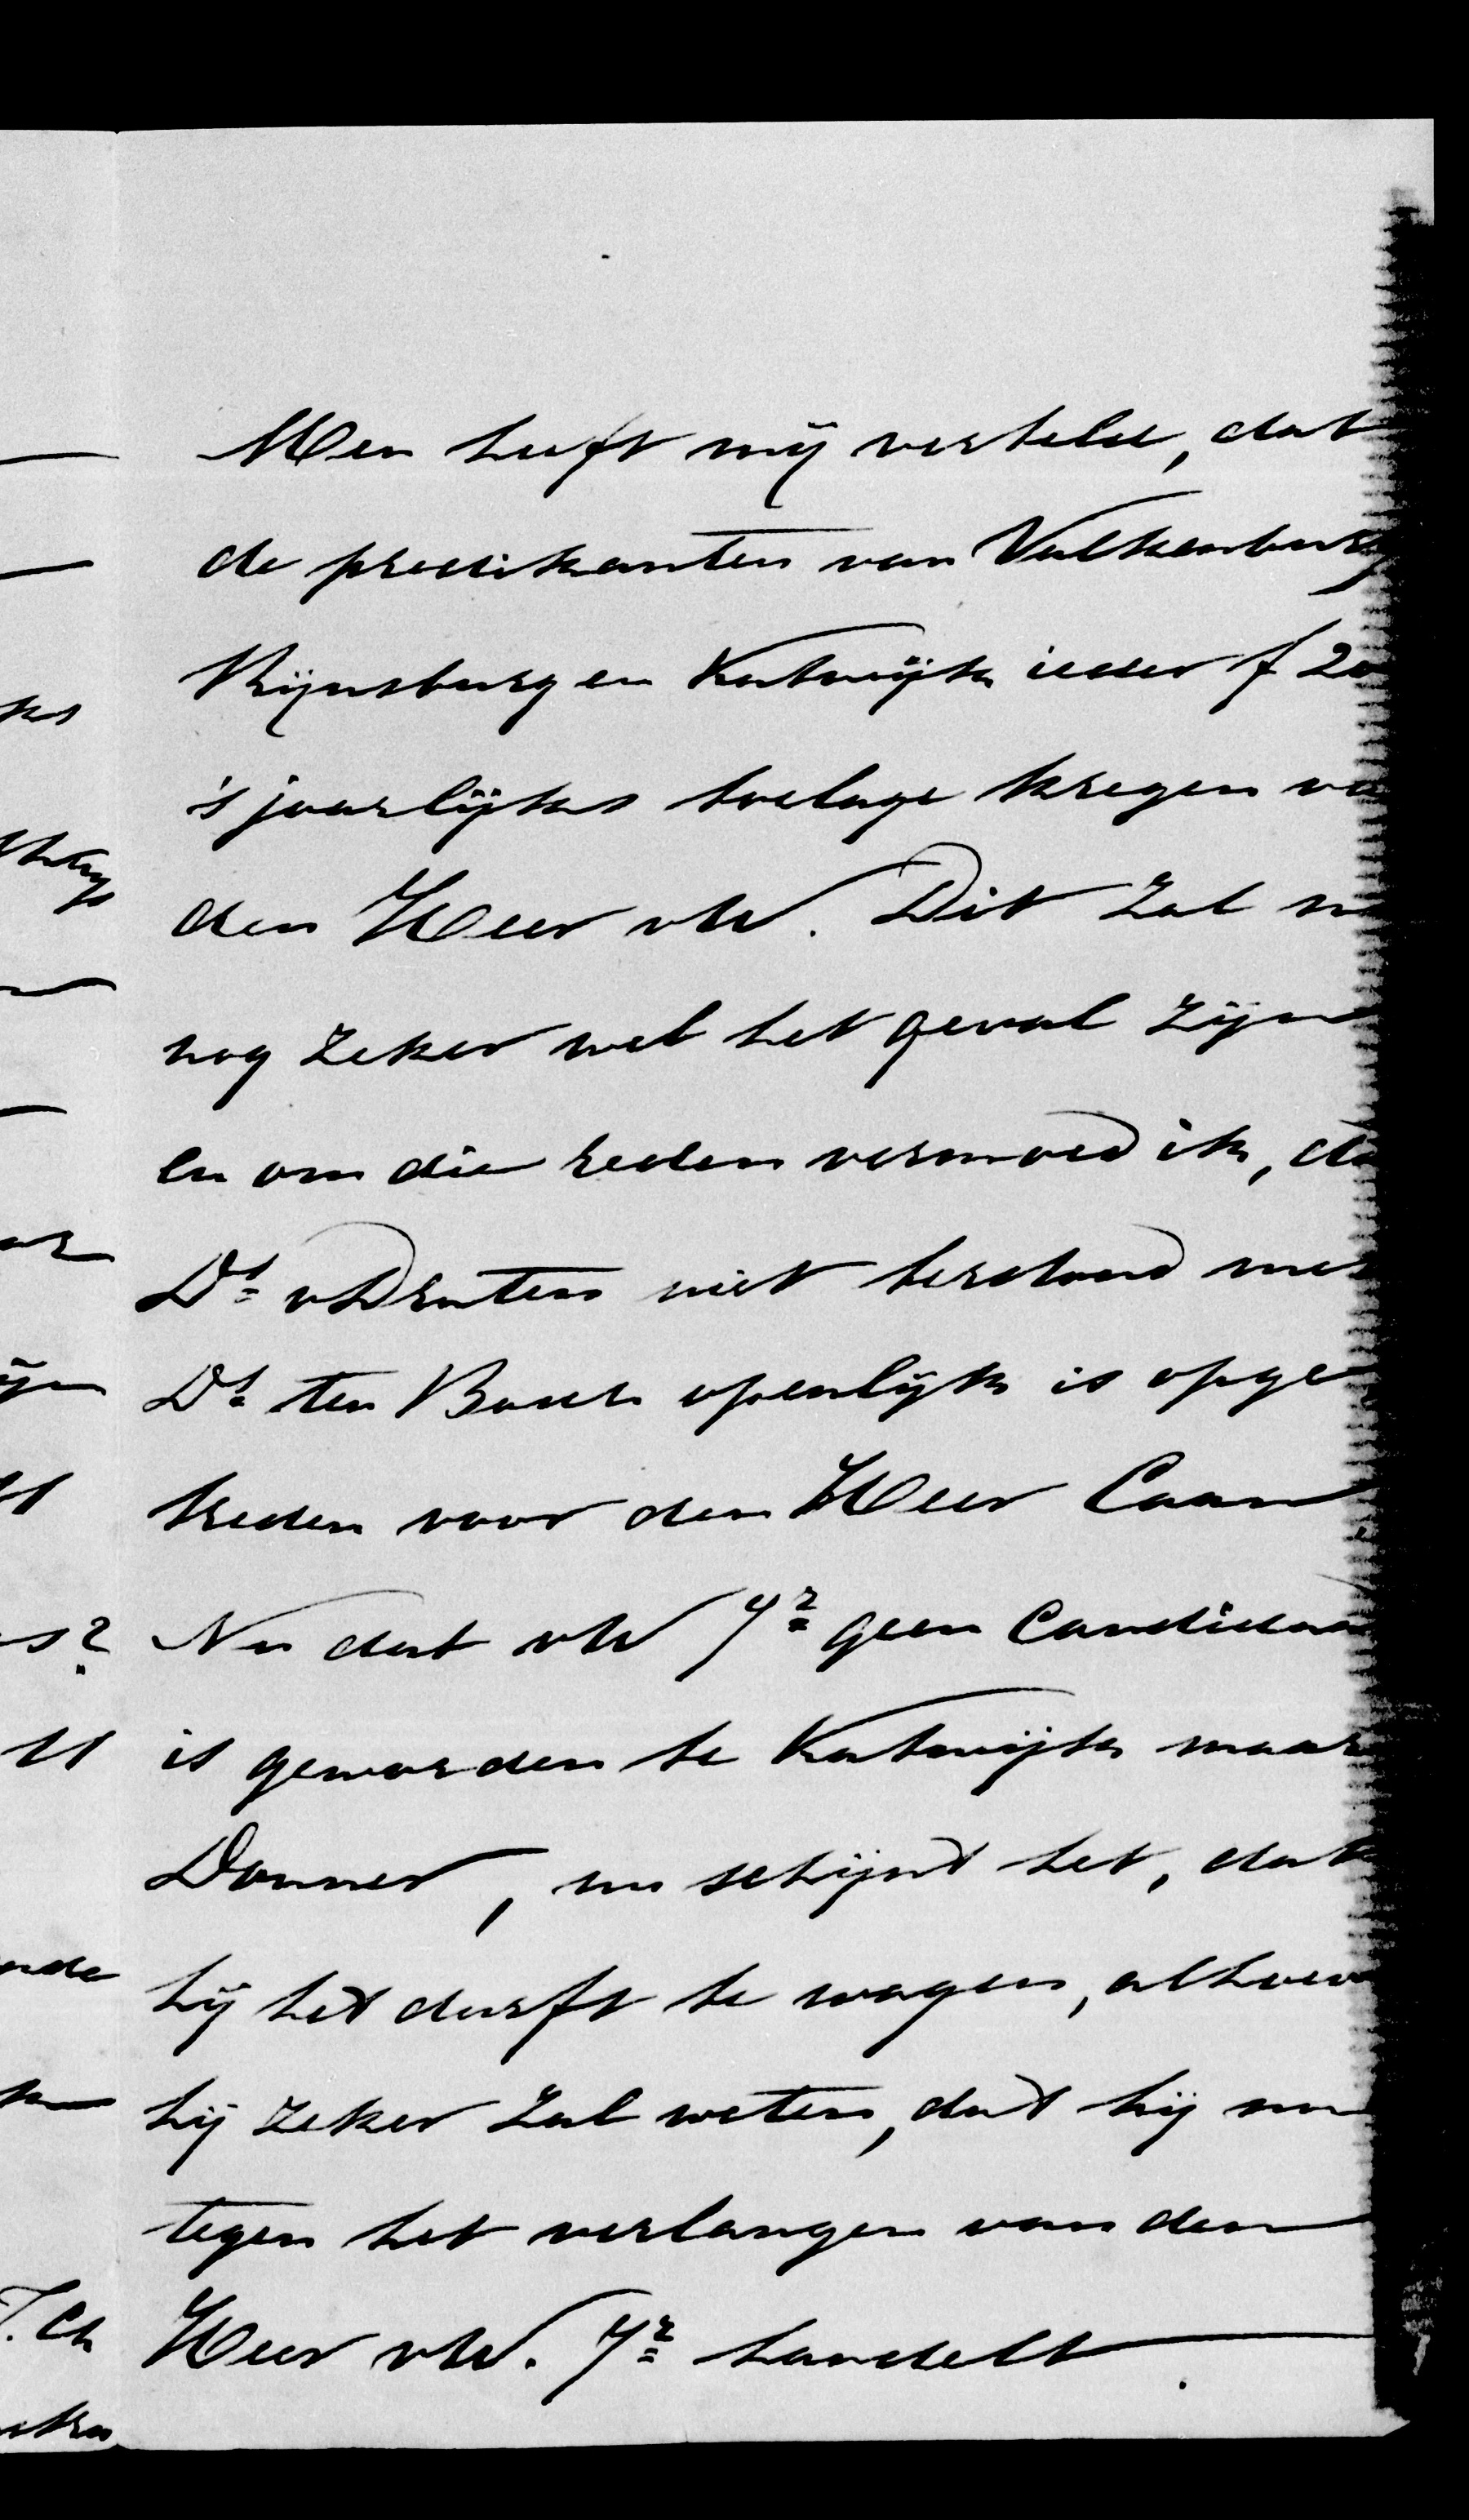 Men heeft mij verteld, dat
de predikanten van Valkenburg
Rijnsburg en Katwijk ieder f 20
's jaarlijks toelage kregen va
den Heer vW. Dit zal n
nog zeker wel het geval zijn
en om die reden vermoed ik, da
Ds v Druten niet terstond met
Ds ten Bosch openlijk is opge
treden voor den Heer Caan
Nu dat vW Jr geen Candidaa
is geworden te Katwijk maar
Donner, nu schijnt het, dat
hij het durft te wagen, alhoew
hij zeker zal weten, dat hij nu
tegen het verlangen van den
Heer vW. Jr handelt.